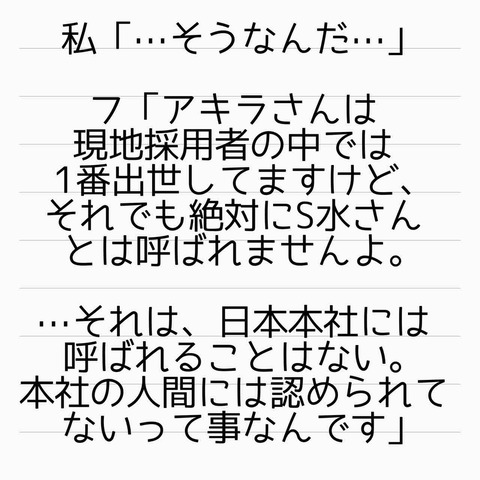 私「…そうなんだ…」
フ「アキラさんは
現地採用者の中では
1番出世してますけど、
それでも絶対にS水さん
とは呼ばれませんよ。
…それは、日本本社には
呼ばれることはない。
本社の人間には認められて
ないって事なんです」